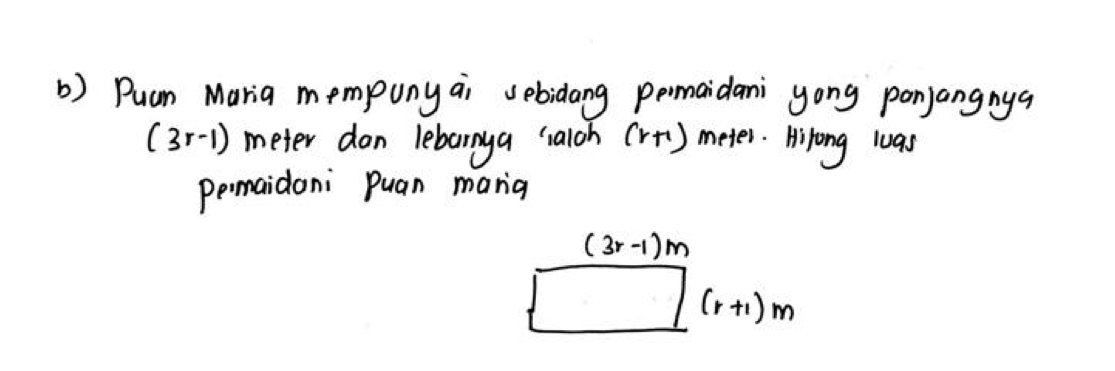 b) Puan Maria mempunyai sebidang permaidani yang panjangnya
(3r-1) meter dan lebarnya ialah (r+1) meter. Hitung luas
permaidani Puan maria
(3r-1)m
(r+1)m